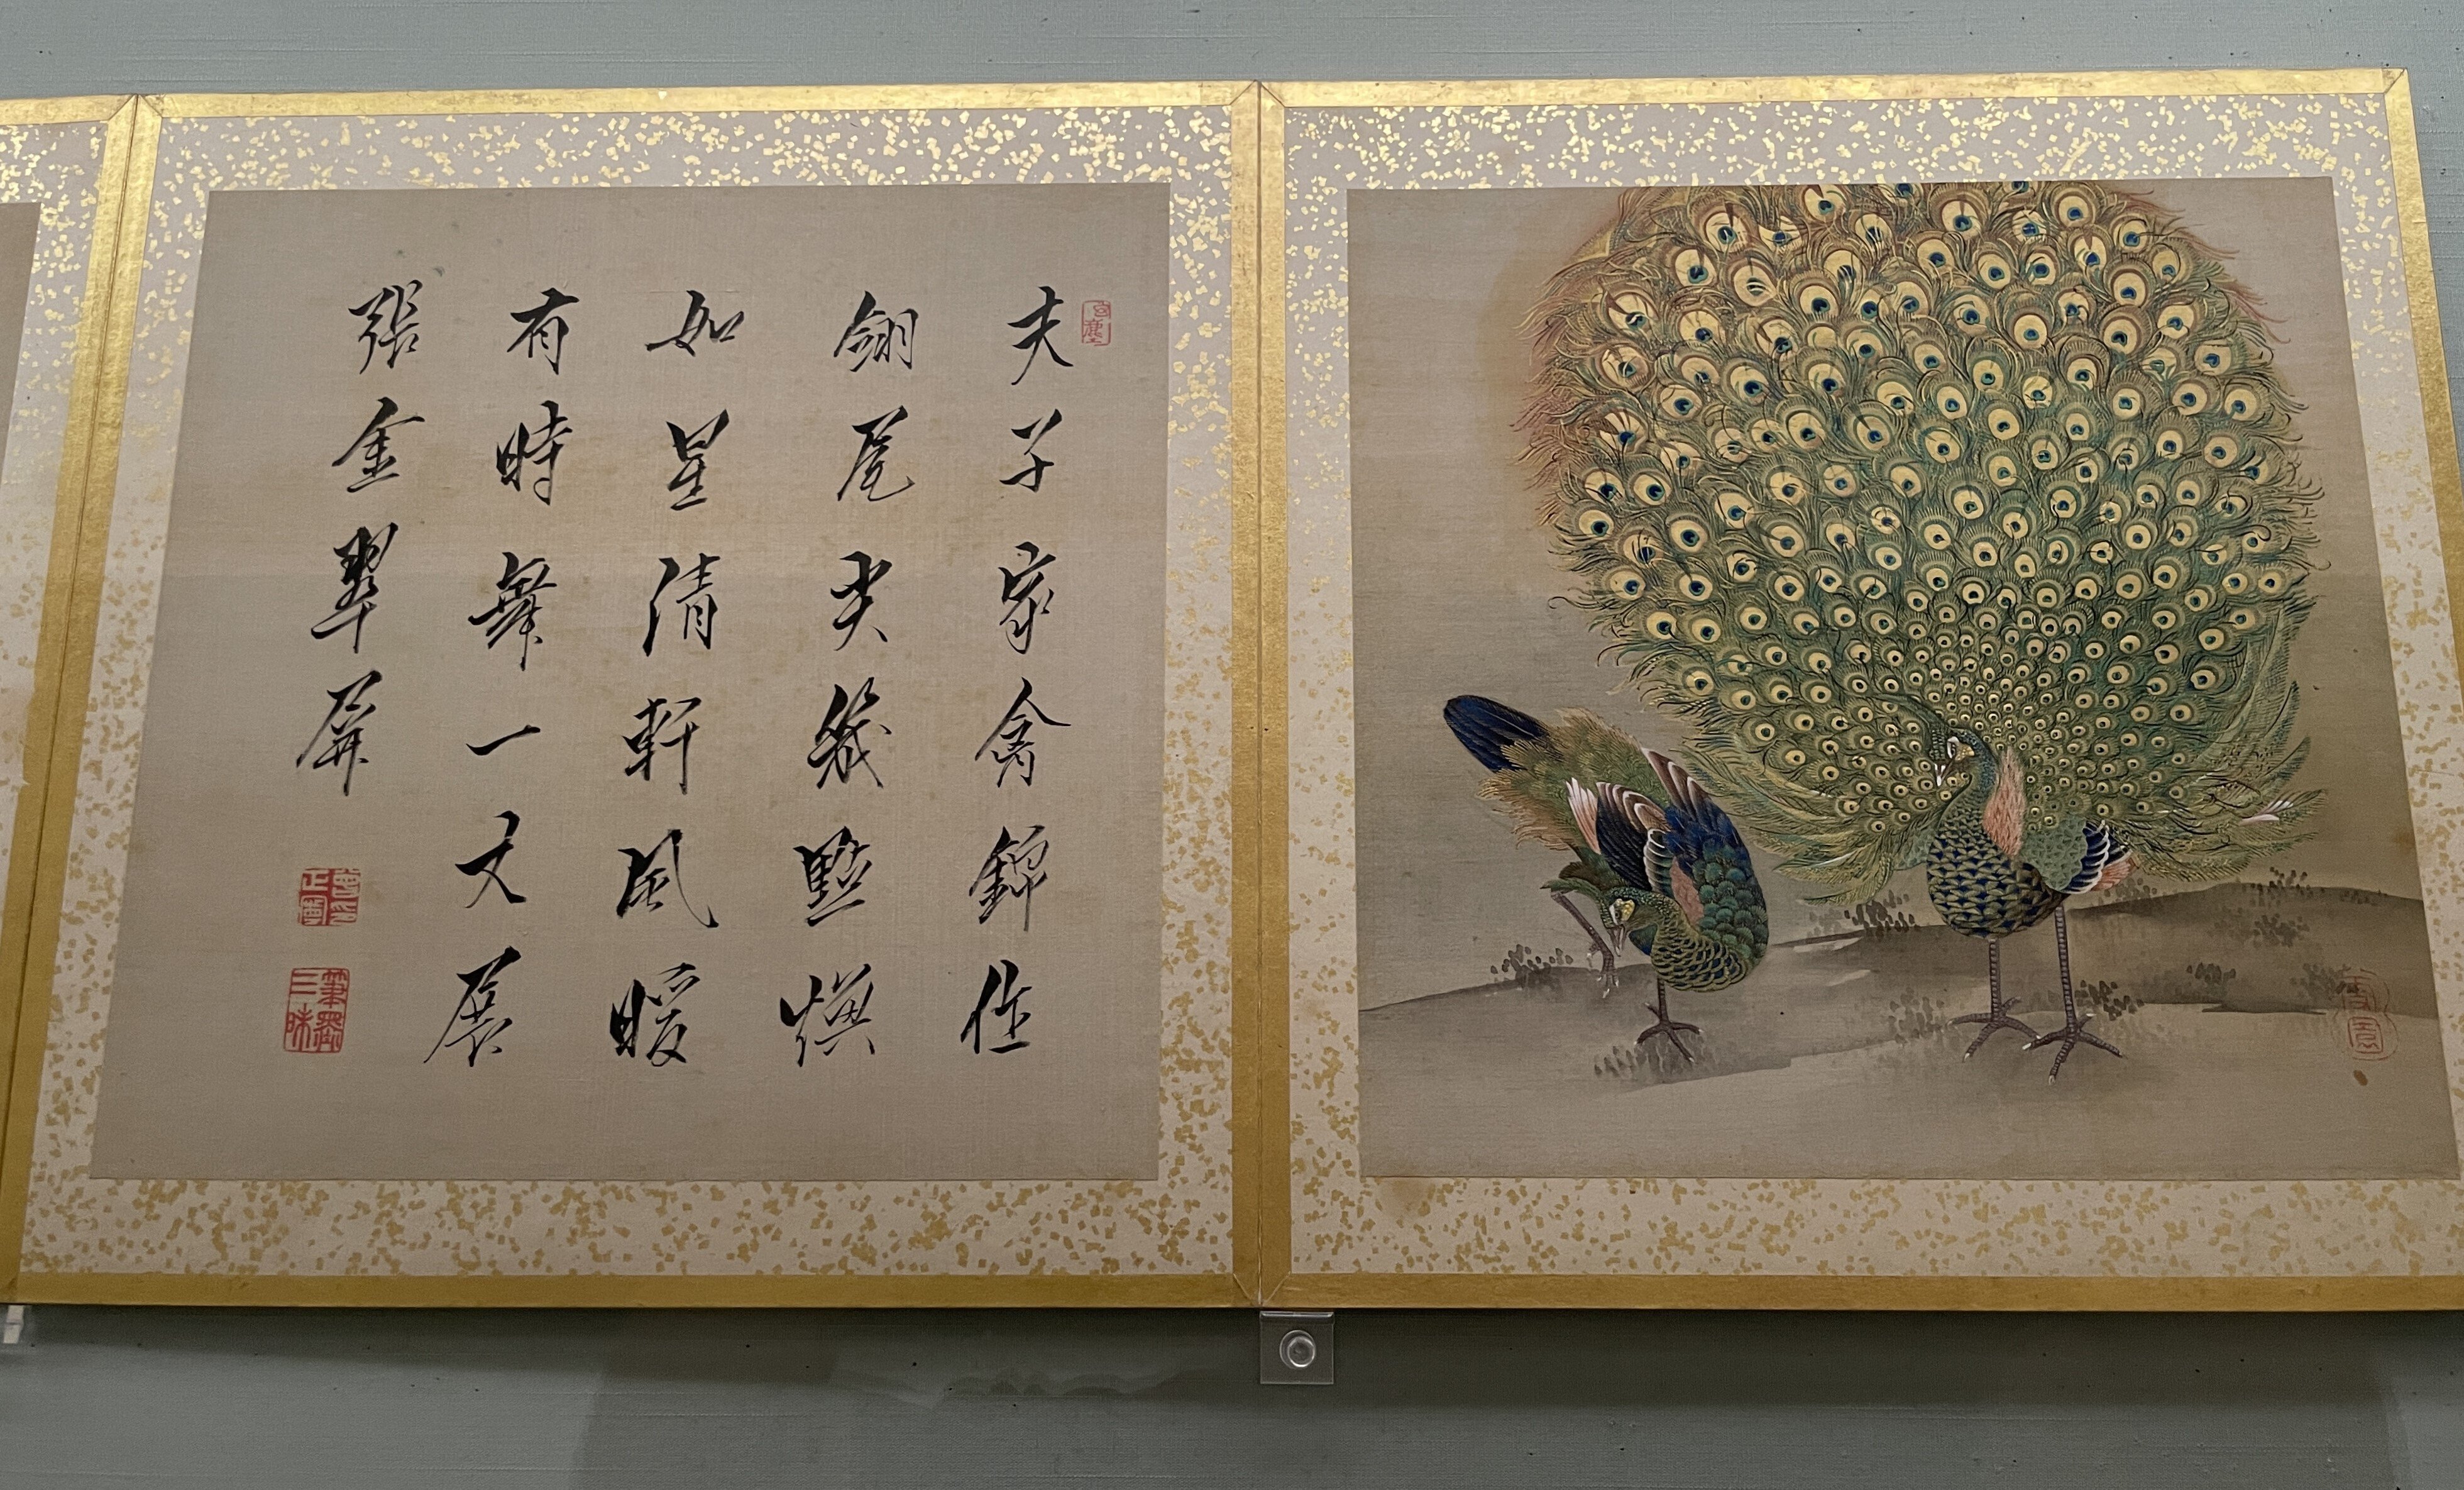 夫子家禽錦作
翎尾尖幾點煥
如星清軒風暖
有時舞一丈展
張金翠屏
筆墨三昧